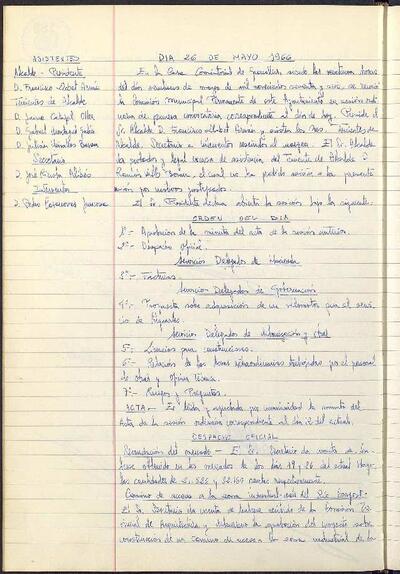 DIA 26 DE MAYO 1966
ASISTENTES
Alcalde - Presidente
D. Francisco Llobet Arnán
Tenientes de Alcalde
D. Jaime
D. Gabriel
D. Julián
Secretario
D. José
Interventor
D. Pedro
En la Casa Consistorial de Granollers, siendo las veintiuna horas
del día veintiseis de mayo de mil novecientos sesenta y seis, se reunió
la Comisión Municipal Permanente de este Ayuntamiento en sesión ordi-
naria de primera convocatoria, correspondiente al día de hoy. Preside el
Sr. Alcalde D. Francisco Llobet Arnán y asisten los Sres. Tenientes de
Alcalde, Secretario e Interventor reseñados al margen. El Sr. Alcalde
ha probado y legal causa de asistencia del Teniente de Alcalde D.
Ramón el cual no ha podido asistir a la presente
sesión por motivos justificados.
El Sr. Presidente declara abierta la sesión bajo la siguiente
ORDEN DEL DIA
1º.- Aprobación de la minuta del acta de la sesión anterior.
2º.- Despacho Oficial.
Servicios Delegados de Hacienda
3º.- Facturas.
Servicios Delegados de Gobernación
4º.- Propuesta sobre adquisición de un para el servi-
cio de
Servicios Delegados de Urbanización y Obras
5º.- Licencias para construcciones.
6º.- Relación de las horas extraordinarias trabajadas por el personal
de obras y oficina técnica.
7º.- Ruegos y Preguntas.
ACTA.- Es leída y aprobada por unanimidad la minuta del
Acta de la sesión ordinaria correspondiente al día 12 del actual.
DESPACHO OFICIAL
Recaudación del mercado.- El Sr. Secretario da cuenta de
haberse obtenido en los mercados de los días 19 y 26 del actual
las cantidades de y pesetas respectivamente.
Camino de acceso a la zona industrial
El Sr. Secretario da cuenta de haberse recibido de la Comisión
de Arquitectura y Urbanismo la aprobación del proyecto sobre
construcción de un camino de acceso a la zona industrial de la